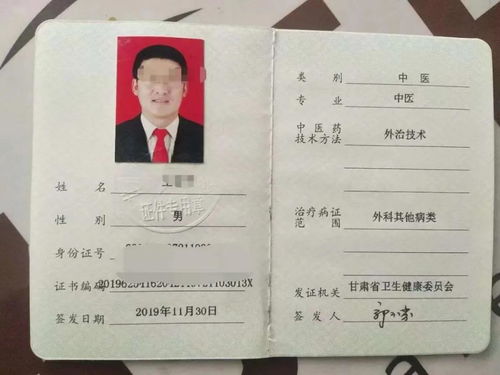 姓 名
证件专用章
性 别 男
身份证号
证书编码
签发日期 2019年11月30日
类 别 中 医
专 业 中医
中医药
技术方法 外治技术
治疗病证
范 围 外科其他病类
发证机关 甘肃省卫生健康委员会
签 发 人